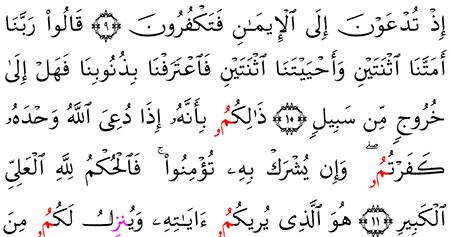 إِذْ تُدْعَوْنَ إِلَى ٱلْإِيمَـٰنِ فَتَكْفُرُونَ ۝٩ قَالُوا۟ رَبَّنَا
أَمَتَّنَا ٱثْنَتَيْنِ وَأَحْيَيْتَنَا ٱثْنَتَيْنِ فَٱعْتَرَفْنَا بِذُنُوبِنَا فَهَلْ إِلَىٰ
خُرُوجٍ مِّن سَبِيلٍ ۝١٠ ذَٰلِكُمُۥ بِأَنَّهُۥ إِذَا دُعِىَ ٱللَّهُ وَحْدَهُۥ
كَفَرْتُمُۥ ۖ وَإِن يُشْرَكْ بِهِۦ تُؤْمِنُوا۟ ۚ فَٱلْحُكْمُ لِلَّهِ ٱلْعَلِىِّ
ٱلْكَبِيرِ ۝١١ هُوَ ٱلَّذِى يُرِيكُمُۥ ءَايَـٰتِهِۦ وَيُنزِلُ لَكُمُۥ مِنَ